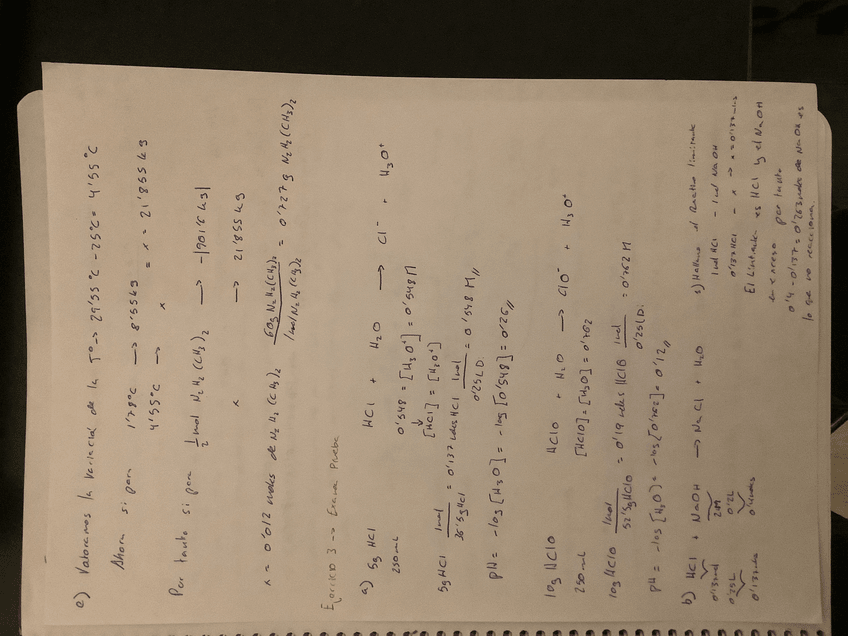 e) Valoremos la variación de la Tº → 29'55 ºC - 25ºC = 4'55 ºC
Ahora si para 1'78ºC → 8'55 kJ
4'55ºC → x = x = 21'855 kJ
Por tanto si para 1/2 mol N2H2(CH3)2 → -|901'6 kJ|
x → 21'855 kJ
x = 0'012 moles de N2H2(CH3)2 60g N2H2(CH3)2 / 1mol N2H2(CH3)2 = 0'727g N2H2(CH3)2
Ejercicio 3 → Examen Prueba
a) 5g HCl HCl + H2O → Cl⁻ + H3O⁺
250 mL 0'548 = [H3O⁺] = 0'548M
[HCl] = [H3O⁺]
5g HCl 1mol / 36'5g HCl = 0'137 moles HCl 1mol / 0'25L D. = 0'548 M //
pH = -log [H3O] = -log [0'548] = 0'26 //
10g HClO HClO + H2O → ClO⁻ + H3O⁺
250 mL [HClO] = [H3O] = 0'762
10g HClO 1mol / 52'5g HClO = 0'19 moles HClO 1mol / 0'25L Di. = 0'762 M
pH = -log [H3O] = -log [0'762] = 0'12 //
b) HCl + NaOH → NaCl + H2O
0'137mol 2M
0'25L 0'2L
0'137mols 0'4moles
s) Hallamos el Reactivo limitante
1mol HCl - 1mol NaOH
0'137 HCl - x → x = 0'137 mols
El limitante es HCl y el NaOH
en exceso por tanto
0'4 - 0'137 = 0'263 moles de NaOH es
lo que no reacciona.